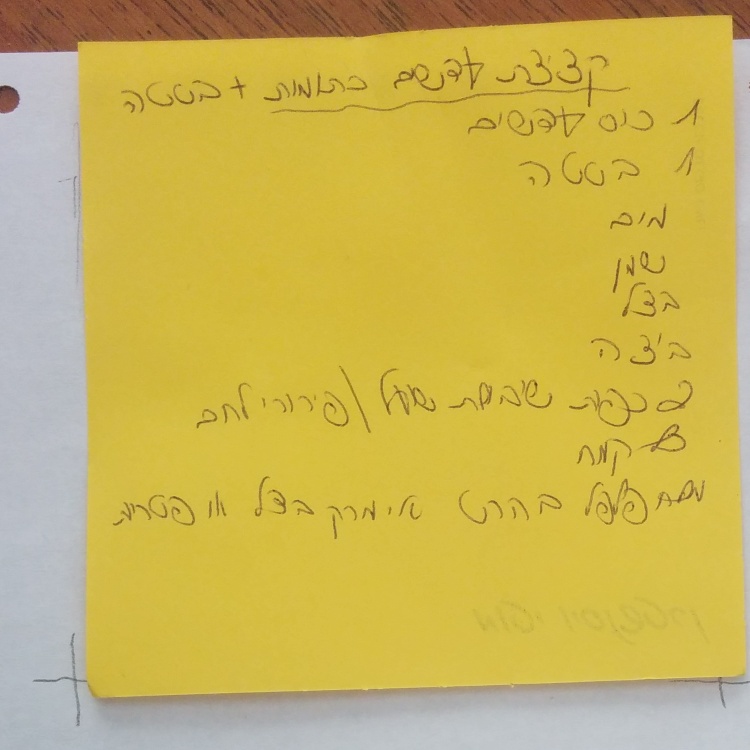 קציצת עדשים כתומות + בטטה
1 כוס עדשים
1 בטטה
מים
שמן
בצל
ביצה
2 כפות שיבולת שועל / פירורי לחם
קמח
מלח פלפל בהרט א׳ מרק בצל או פטריות